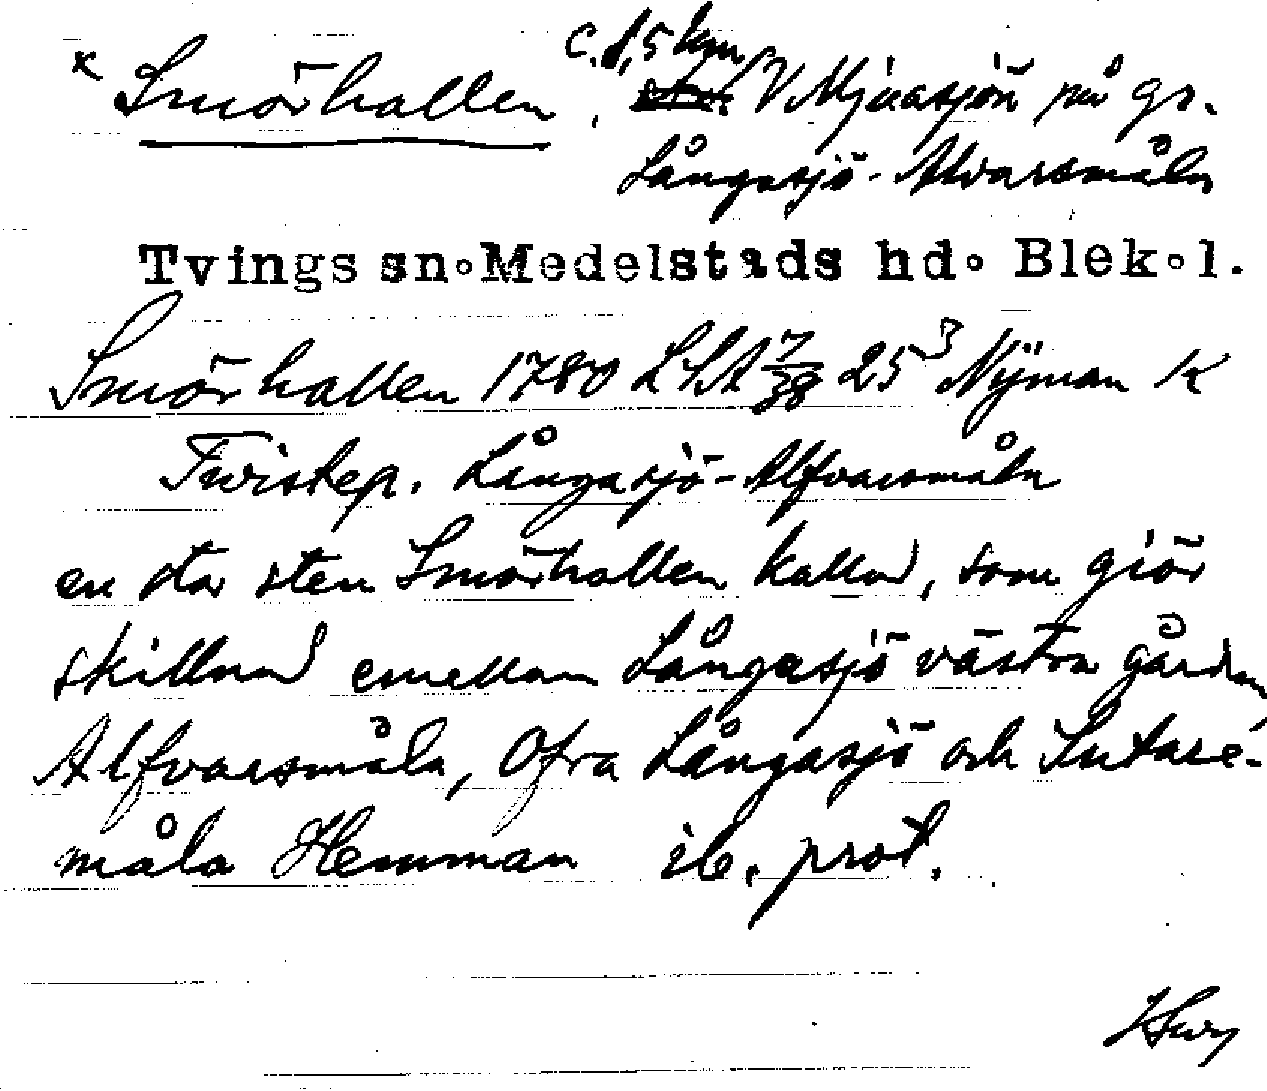 x Smörhallen, c. 1,5 km V Mjuasjön på gr.
Långasjö - Alvarsmåla
Tvings sn. Medelstads hd. Blek. l.
Smörhallen 1780 LSA 7/38 25 3 Nyman K
Twistep. Långasjö - Alfvarsmåla
en stor sten Smörhallen kallad, som giör
skillnad emellan Långasjö västra gården
Alfvarsmåla, Ofra Långasjö och Sutare-
måla Hemman ib. prot.